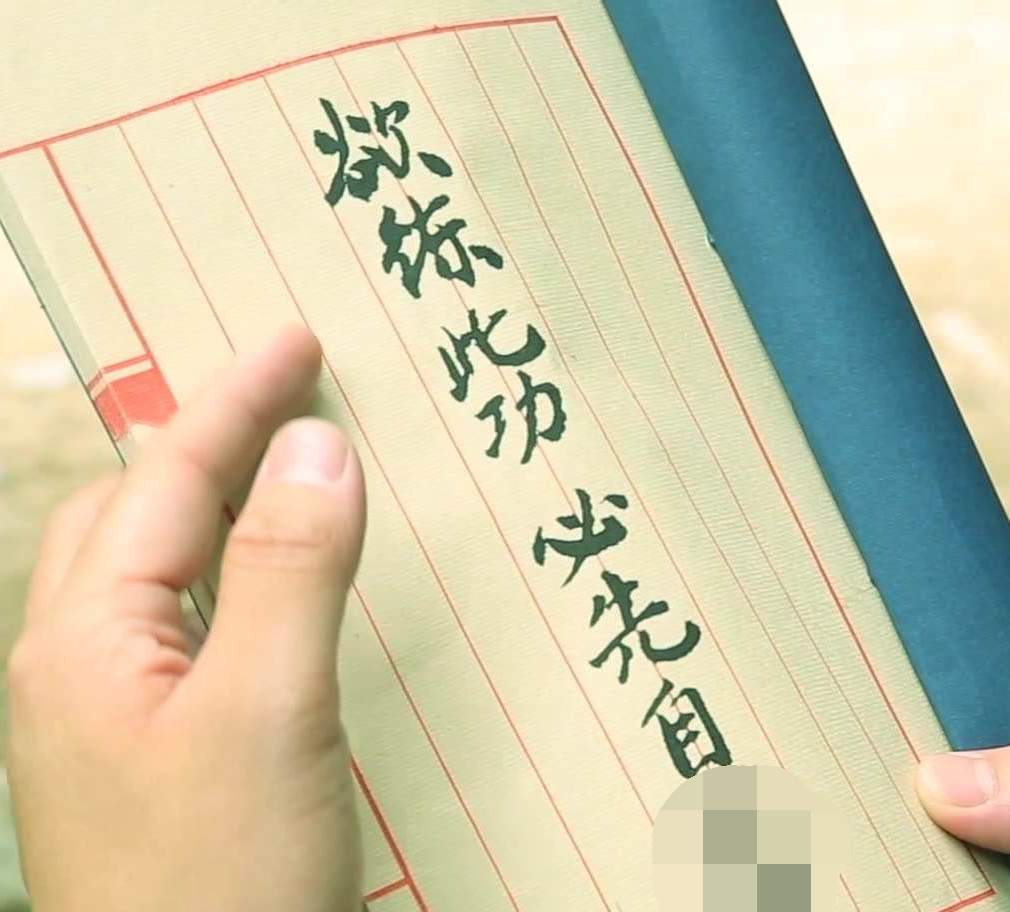 欲练此功必先自